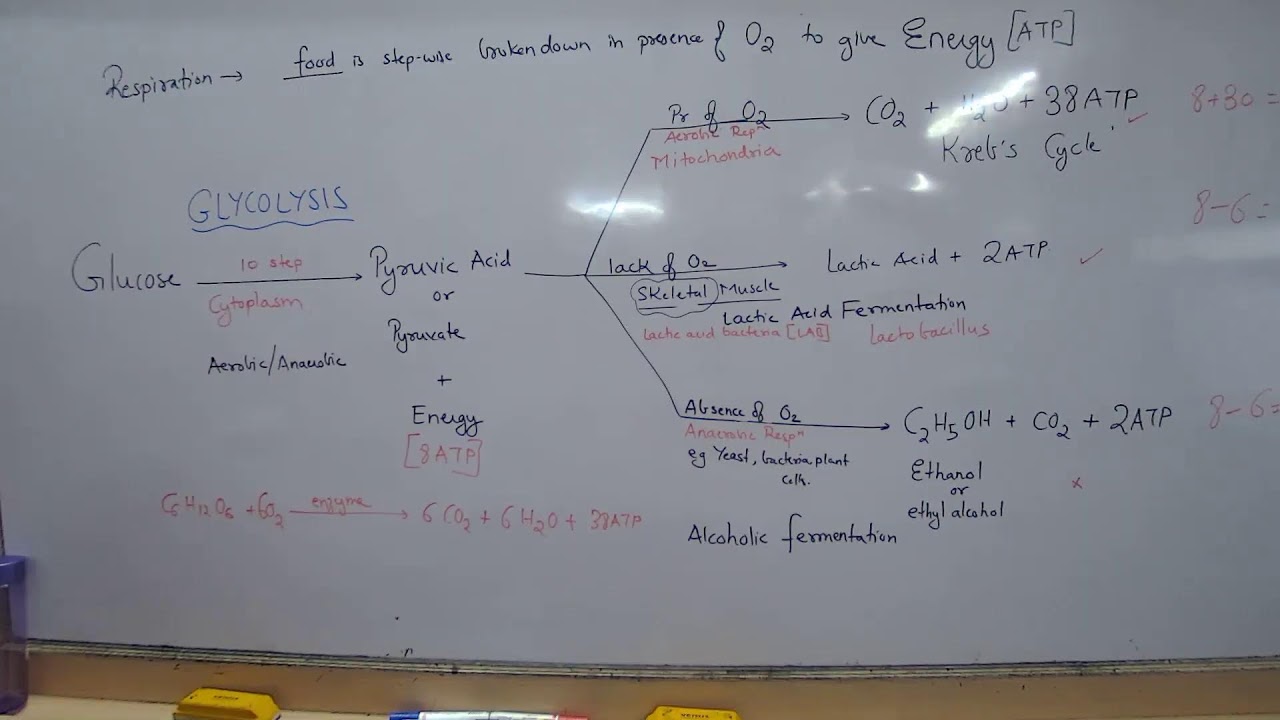 Respiration → food is step-wise broken down in presence of O2 to give Energy [ATP]
Pr of O2 → CO2 + H2O + 38ATP ✓ 8+30 =
Aerobic Respn
Mitochondria
Kreb's Cycle
GLYCOLYSIS
8-6=
Glucose 10 step → Pyruvic Acid
Cytoplasm
or
Pyruvate
Aerobic/Anaerobic
+
Energy
[8ATP]
lack of O2 → Lactic Acid + 2ATP ✓
Skeletal Muscle
Lactic Acid Fermentation
Lactic acid bacteria [LAB] Lactobacillus
Absence of O2 → C2H5OH + CO2 + 2ATP 8-6=
Anaerobic Respn
eg Yeast, bacteria, plant
cells.
Ethanol
or
ethyl alcohol
x
Alcoholic fermentation
C6H12O6 + 6O2 enzyme → 6CO2 + 6H2O + 38ATP